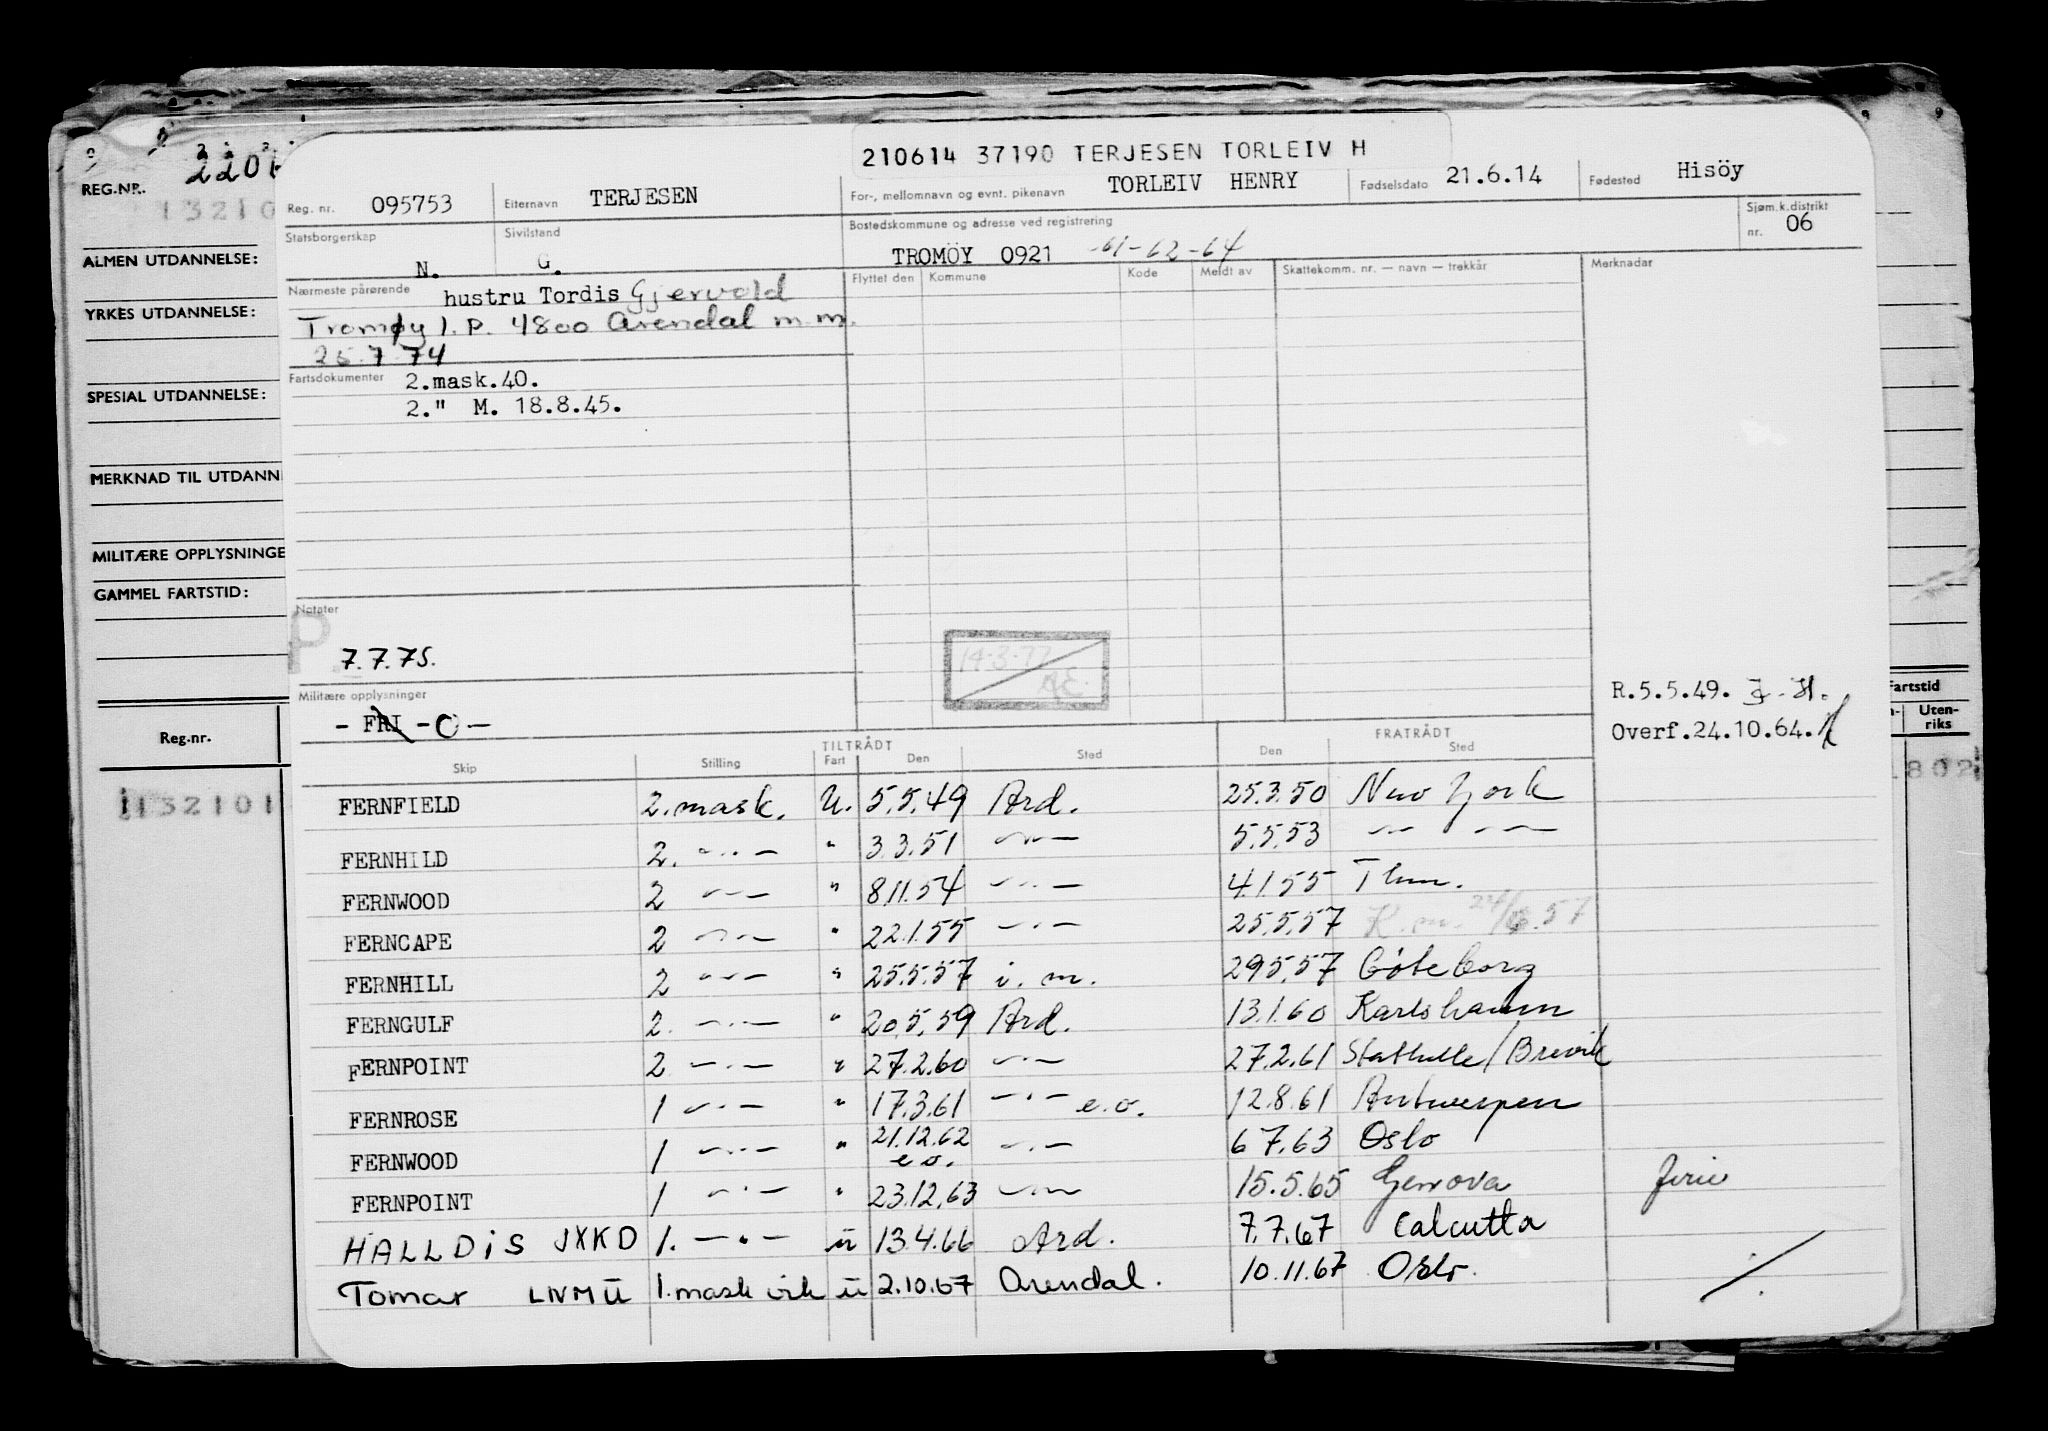 210614 37190 TERJESEN TORLEIV H
REG.NR.
Reg. nr. 095753 Etternavn TERJESEN For-, mellomnavn og evnt. pikenavn TORLEIV HENRY Fødselsdato 21.6.14 Fødested Hisöy
Statsborgerskap N. Sivilstand G. Bostedskommune og adresse ved registrering TROMÖY 0921 -61-62-64 Sjøm.k.distrikt nr. 06
Nærmeste pårørende hustru Tordis Gjervold
Tromøy 1. P. 4800 Arendal m.m.
25.7.74
Flyttet den Kommune Kode Meldt av Skattekomm. nr. — navn — trekkår Merknader
Fartsdokumenter 2.mask.40.
2." M. 18.8.45.
ALMEN UTDANNELSE:
YRKES UTDANNELSE:
SPESIAL UTDANNELSE:
MERKNAD TIL UTDANN
MILITÆRE OPPLYSNINGE
GAMMEL FARTSTID:
Notater
P
7.7.75.
14.3.77
Æ.
Militære opplysninger
- FRI -O-
R.5.5.49.
Overf.24.10.64.
Reg.nr.
Fartstid
Uten-
riks
1132101
1802
TILTRÅDT FRATRÅDT
Skip Stilling Fart Den Sted Den Sted
FERNFIELD 2.mask. U. 5.5.49 Ard. 25.3.50 New York
FERNHILD 2. -"- " 3.3.51 -"- 5.5.53 -"- -"-
FERNWOOD 2 -"- " 8.11.54 -"- 4.1.55 Thm.
FERNCAPE 2 -"- " 22.1.55 -"- 25.5.57 K.m. 24/6.57
FERNHILL 2 -"- " 25.5.57 i.m. 29.5.57 Göteborg
FERNGULF 2. -"- " 20.5.59 Ard. 13.1.60 Karlshamn
FERNPOINT 2 -"- " 27.2.60 -"- 27.2.61 Stathelle/Brevik
FERNROSE 1 -"- " 17.3.61 -"- e.o. 12.8.61 Antwerpen
FERNWOOD 1 -"- " 21.12.62 e.o. -"- 6.7.63 Oslo
FERNPOINT 1 -"- " 23.12.63 -"- 15.5.65 Genova ferie
HALLDIS JXKD 1. -"- u 13.4.66 Ard. 7.7.67 Calcutta
Tomar LIVM U 1.mask vik u 2.10.67 Arendal. 10.11.67 Oslo.